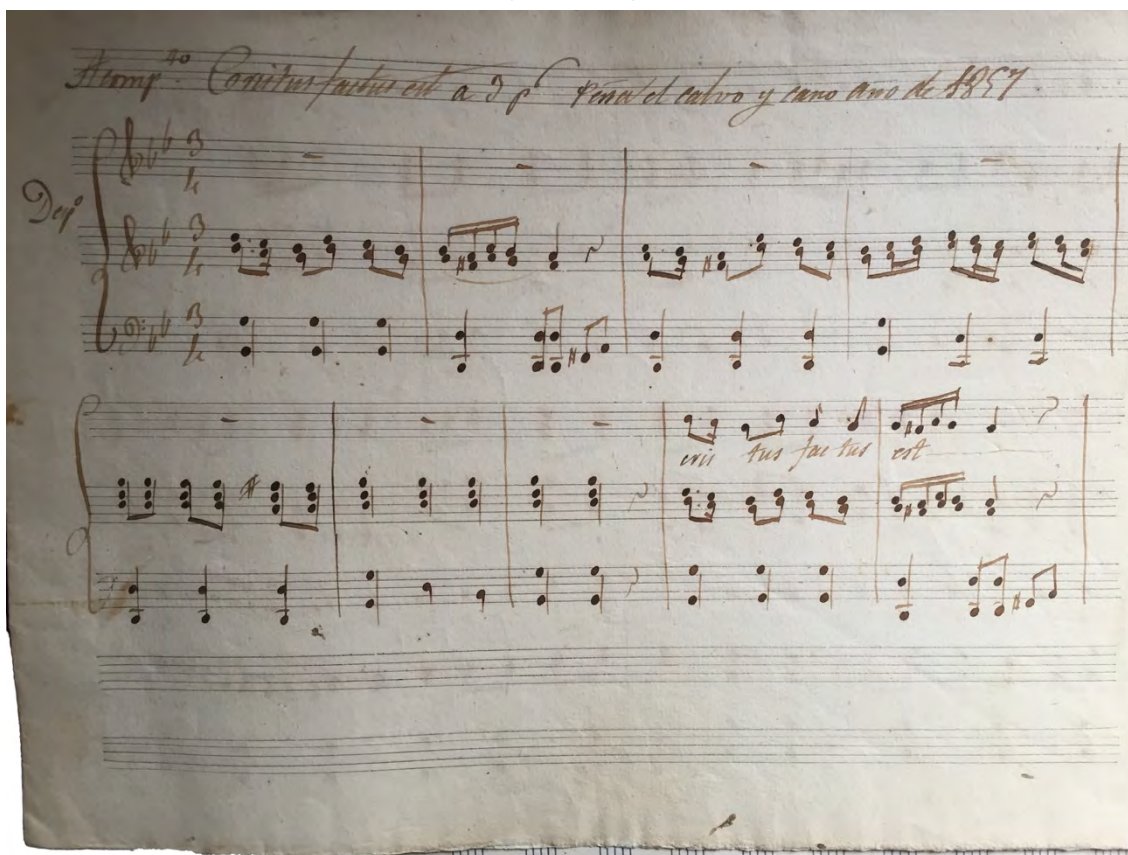 Acomp.to Cristus factus est a 3 p.s Peña el calvo y cano año de 1857
Desp.o
3 4
3 4
3 4
cris tus fac tus est